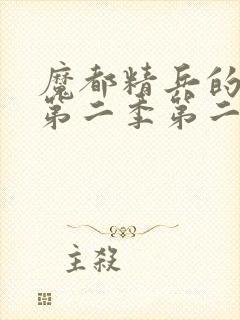 魔都精兵的
第二季第二
主殺